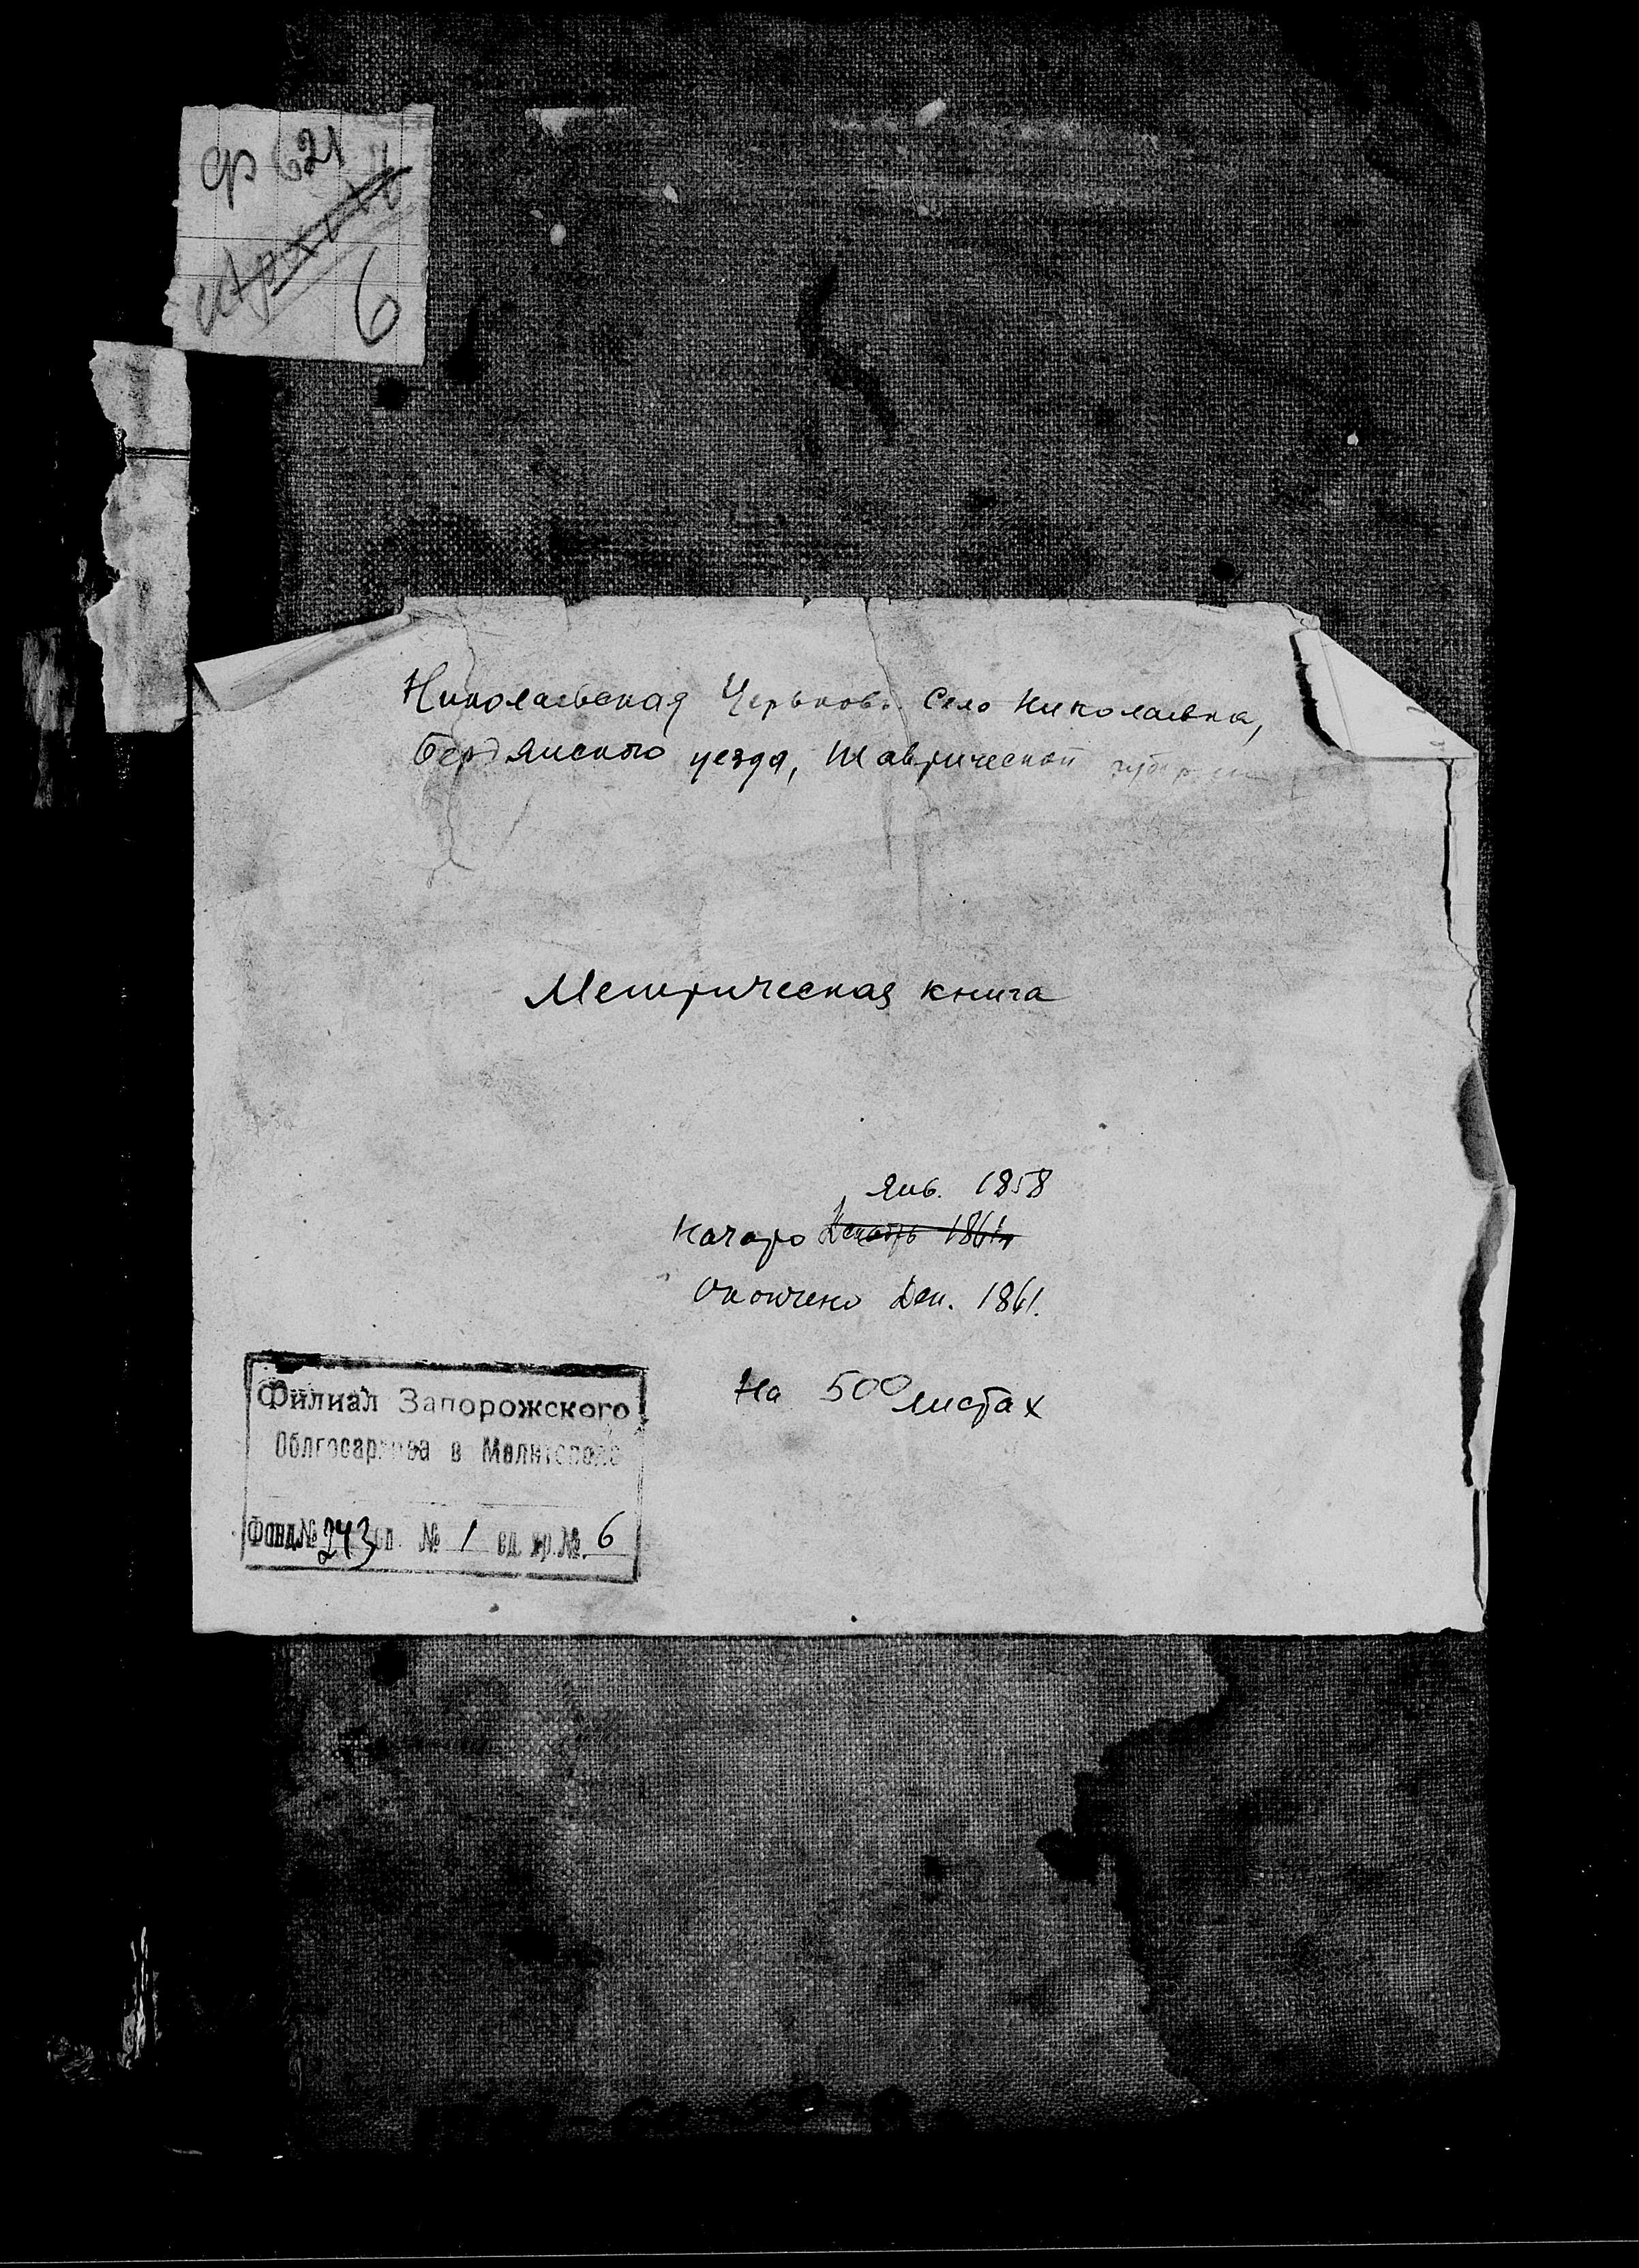 ф 621
6
Николаевская Церковь. Село Николаевка,
Бердянского уезда, Таврической губернии
Метрическая книга
Янв. 1858
Начато Декабрь 1861
Окончено Дек. 1861.
На 500 листах
Филиал Запорожского
Облгосархива в Мелитополе
Фонд№ 243 оп. № 1 ед. хр.№ 6